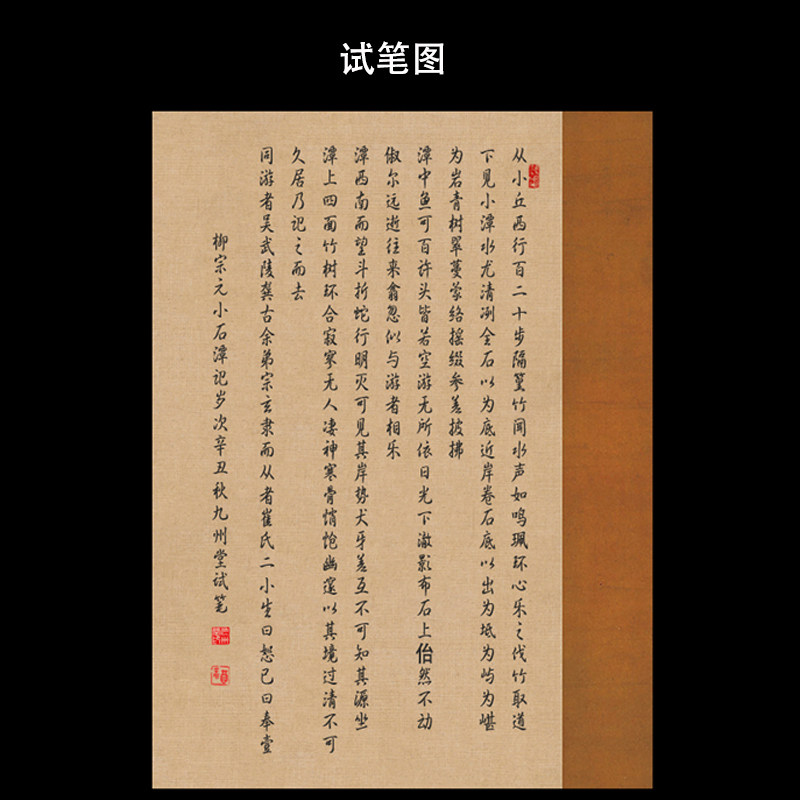 试笔图
从小丘西行百二十步隔篁竹闻水声如鸣珮环心乐之伐竹取道
下见小潭水尤清冽全石以为底近岸卷石底以出为坻为屿为嵁
为岩青树翠蔓蒙络摇缀参差披拂
潭中鱼可百许头皆若空游无所依日光下澈影布石上佁然不动
俶尔远逝往来翕忽似与游者相乐
潭西南而望斗折蛇行明灭可见其岸势犬牙差互不可知其源坐
潭上四面竹树环合寂寥无人凄神寒骨悄怆幽邃以其境过清不可
久居乃记之而去
同游者吴武陵龚古余弟宗玄隶而从者崔氏二小生曰恕己曰奉壹
柳宗元小石潭记岁次辛丑秋九州堂试笔